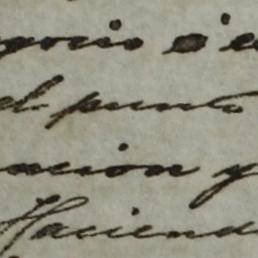 gocio ó e
el punto
acion y
Hacienda